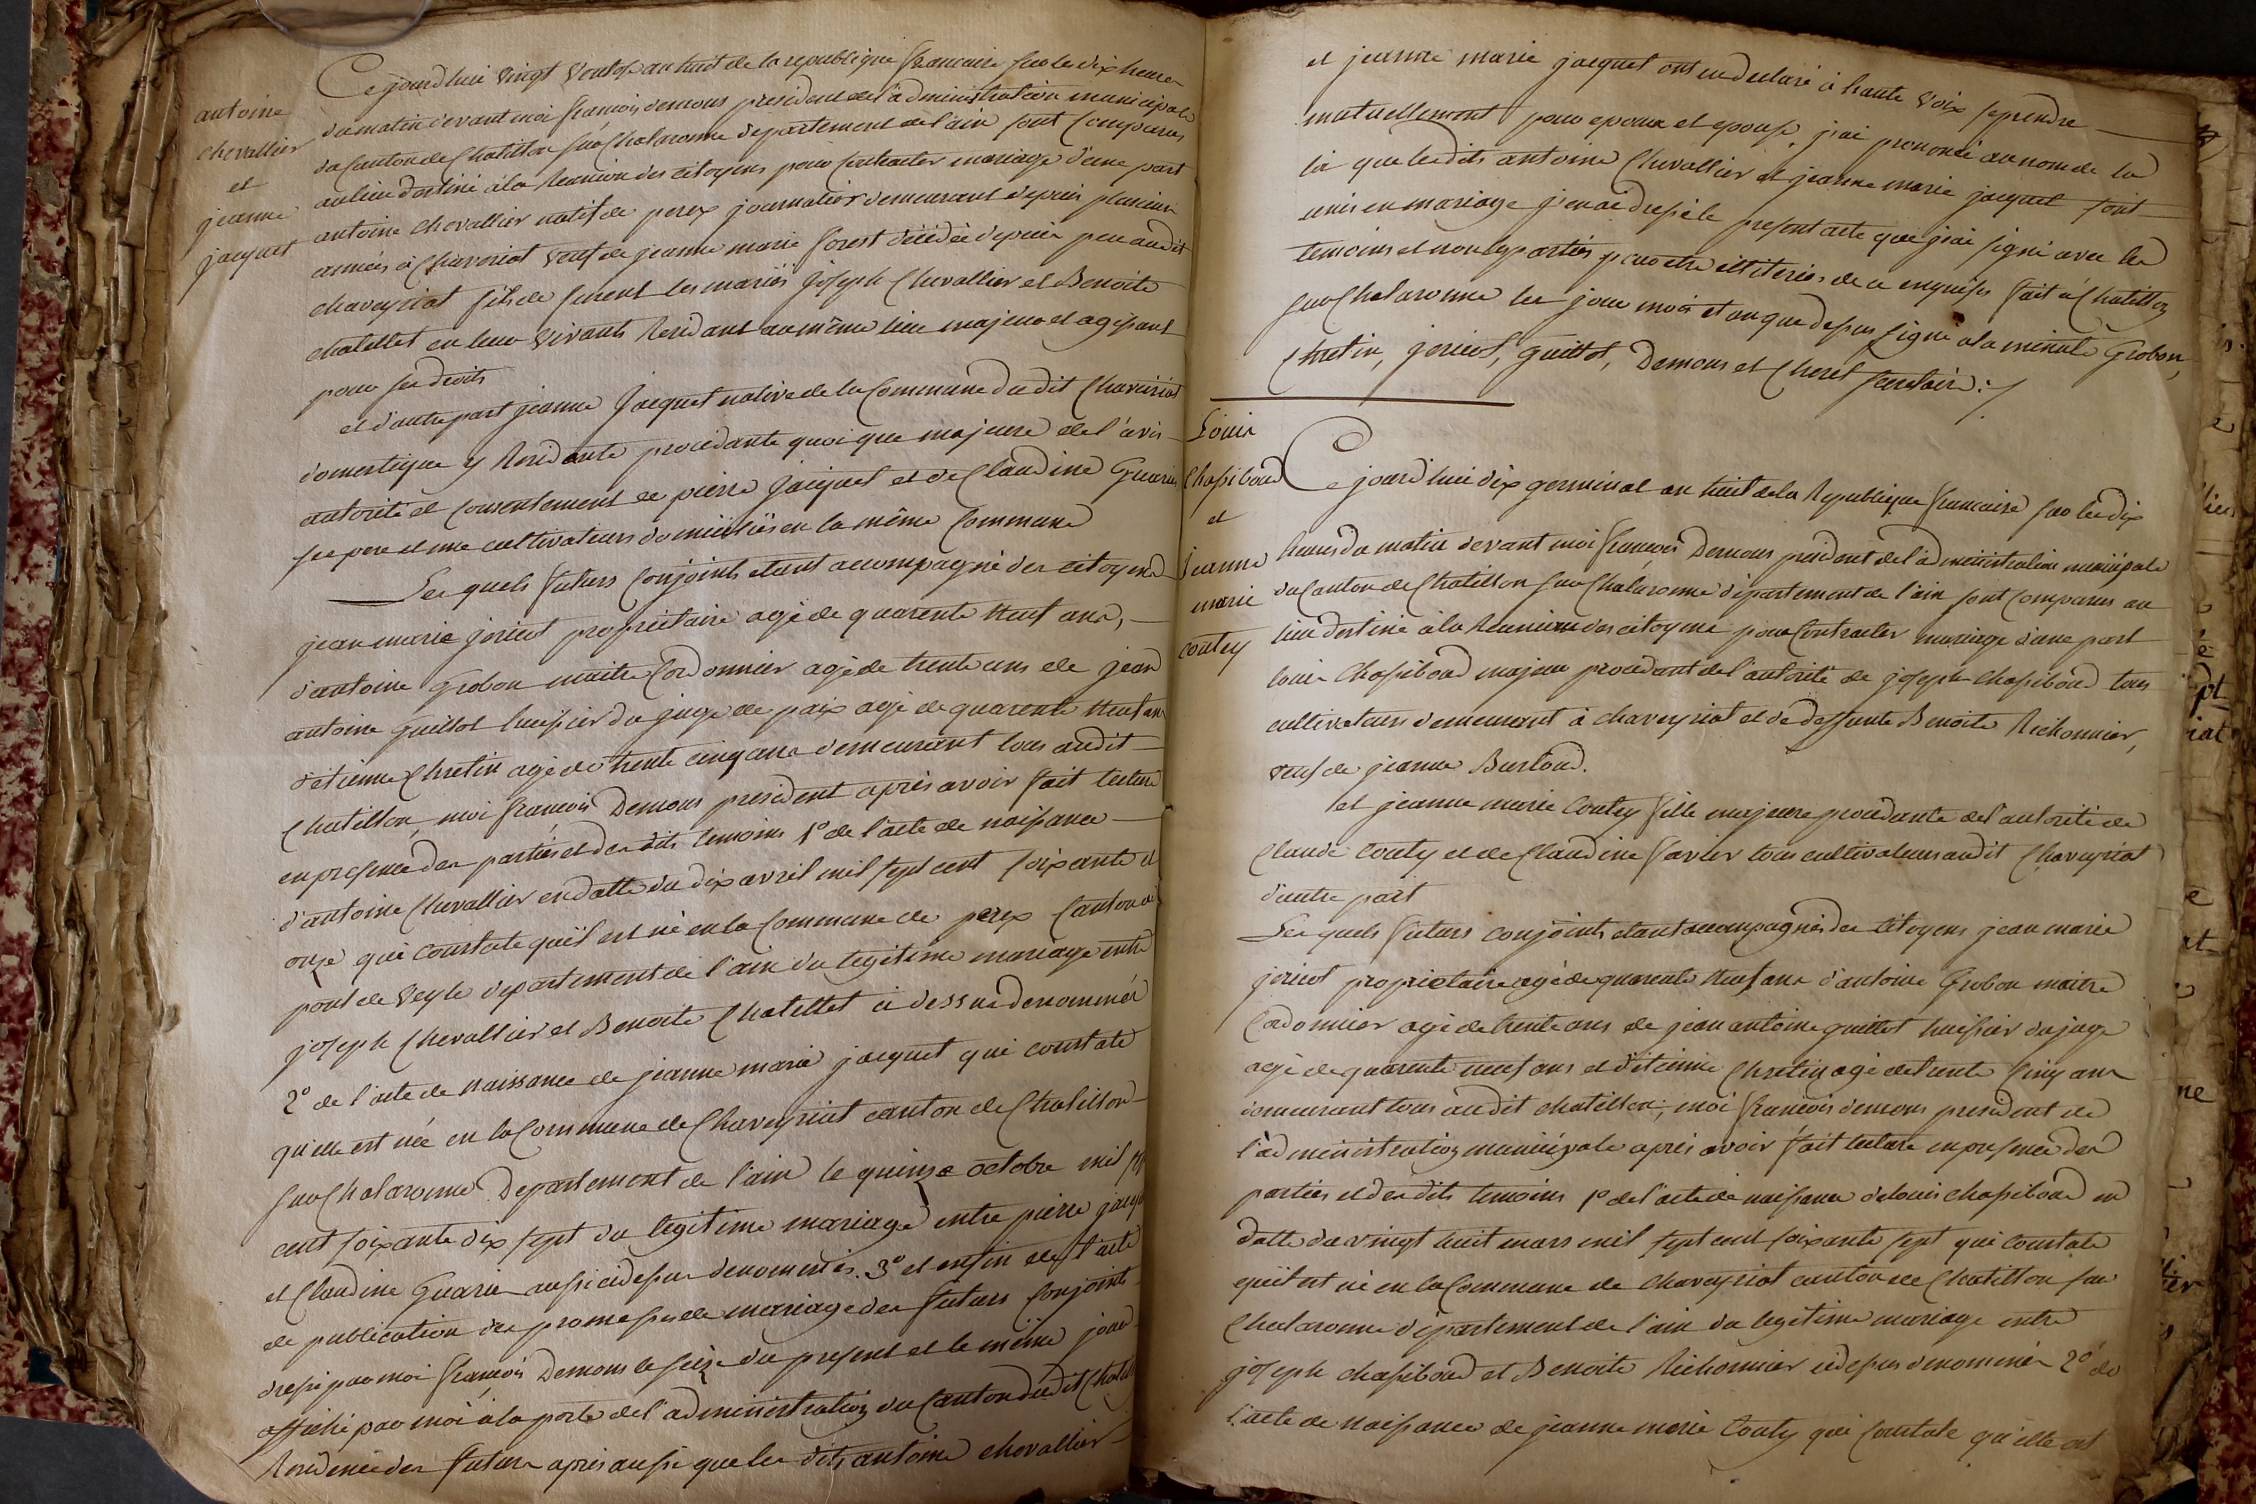 antoine
chevallier
et
jeanne
jacquet
Ce jourd'hui vingt ventose an huit de la republique francaise sur les dix heures
du matin devant moi francois demous president de l'administration municipale
du canton de Chatillon sur Chalaronne departement de l'ain sont comparus
au lieu destiné à la Reunion des citoyens pour contracter mariage d'une part
antoine chevallier natif de perex journalier demeurant depuis plusieurs
années à Chaveriat veuf de jeanne marie forest décédée depuis peu audit
chaveyriat fils de furent les mariés joseph Chevallier et Benoite
chatellet en leur vivants Residant au même lieu majeur et agissant
pour ses droits
et d'autre part jeanne Jacquet native de la Commune du dit Chaveiriat
domestique y Residante procedante quoi que majeure de l'avis
autorité et consentement de pierre Jacquet et de Claudine Guerin
ses pere et mere cultivateurs domiciliés en la même Commune
Les quels futurs Conjoints etant accompagné des citoyens
jean marie joricot proprietaire agé de quarente neuf ans,
d'antoine Grobon maitre Cordonnier agé de trente ans de jean
antoine guillot huissier du juge de paix agé de quarente neuf ans
d'étienne Chretin agé de trente cinq ans demeurant tous audit
Chatillon, moi francois Demous president après avoir fait lecture
en presence des parties et des dits temoins 1º de l'acte de naissance
d'antoine Chevallier en datte du dix avril mil sept cent soixante et
onze qui constate quil est né en la Commune de perex Canton de
pont de Veyle departement de l'ain du legitime mariage entre
joseph Chevallier et Benoite Chatellet ci dessus denommés
2º de l'acte de naissance de jeanne marie jacquet qui constate
qu'elle est née en la Commune de Chaveyriat canton de Chatillon
sur Chalaronne Departement de l'ain le quinze octobre mil sept
cent soixante dix sept du legitime mariage entre pierre jacquet
et Claudine Guerin aussi cidessus denommés. 3º et enfin de l'acte
de publication des promesses de mariage des futurs Conjoints
dressé par moi francois Demous le seize du present et le même jour
affiché par moi à la porte de l'administration du Canton dudit Chatillon
Residence des futurs après aussi que les dits antoine chevallier
et jeanne marie jacquet ont eu declaré à haute voix se prendre
mutuellement pour epoux et epouse, j'ai prononcé au nom de la
loi que les dits antoine Chevallier et jeanne marie jacquet sont
unis en mariage j'en ai dressé le present acte que j'ai signé avec les
temoins et non les parties pour etre illiterés de ce enquis fait à Chatillon
sur Chalaronne les jour mois et an que dessus signé à la minute Grobon,
Chretin, joricot, guillot, Demous et Cherel secretaire :/
Louis
Chassiboud
et
Jeanne
marie
coutey
Ce jourd'hui dix germinal an huit de la Republique francaise sur les dix
heures du matin devant moi francois Demous president de l'administration municipale
du Canton de Chatillon sur Chalaronne departement de l'ain sont comparus au
lieu destiné à la Reunion des citoyens pour Contracter mariage d'une part
louis Chassiboud majeur procedant de l'autorité de joseph Chassiboud tous
cultivateurs demeurant à chaveyriat et de deffunte Benoite Richonnier,
veuf de jeanne Burtoud.
et jeanne marie Couty fille majeure procedante de l'autorité de
Claude Couty et de Claudine favier tous cultivateurs audit Chaveyriat
d'autre part
Les quels futurs conjoints etant accompagnés des citoyens jean marie
joricot proprietaire agé de quarente neuf ans d'antoine Grobon maitre
Cordonnier agé de trente ans de jean antoine guillot huissier du juge
agé de quarente neuf ans et d'étienne Chretin agé de trente Cinq ans
demeurant tous audit chatillon, moi francois demous president de
l'administration municipale après avoir fait lecture en presence des
parties et des dits temoins 1º de l'acte de naissance de louis chassiboud en
datte du vingt huit mars mil sept cent soixante sept qui constate
quil est né en la Commune de chaveyriat canton de Chatillon sur
Chalaronne departement de l'ain du legitime mariage entre
joseph chassiboud et Benoite Richonnier cidessus denommés 2º de
l'acte de naissance de jeanne marie Couty qui constate qu'elle est